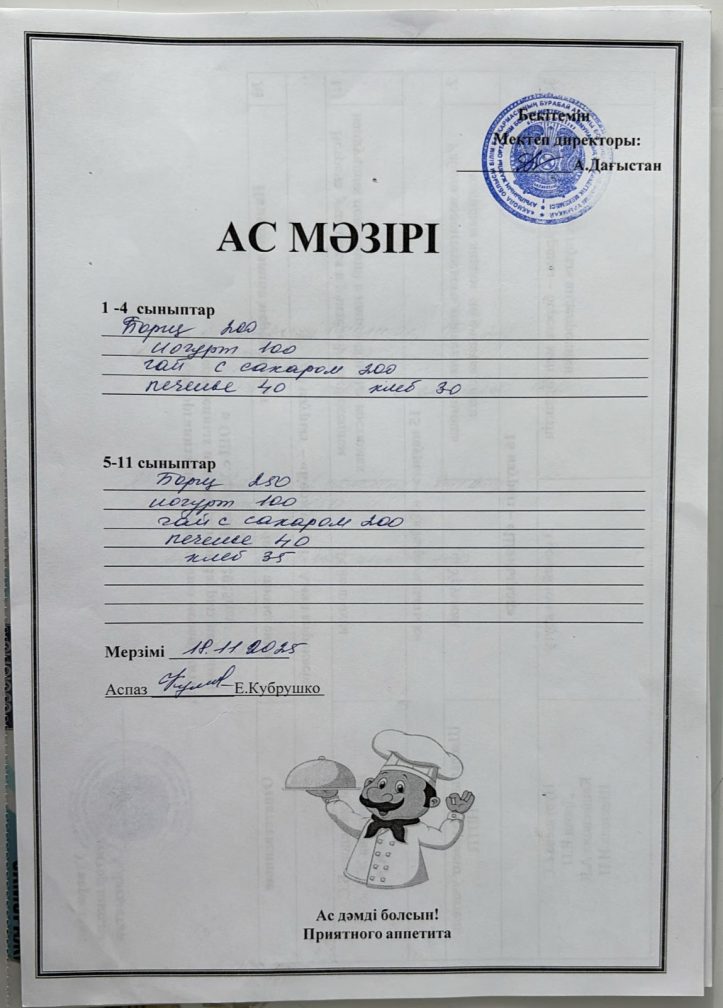 Бекітемін
Мектеп директоры:
А.Дағыстан
АС МӘЗІРІ
1 -4 сыныптар
Борщ 200
йогурт 100
чай с сахаром 200
печенье 40 хлеб 30
5-11 сыныптар
Борщ 250
йогурт 100
чай с сахаром 200
печенье 40
хлеб 35
Мерзімі 18.11 2025
Аспаз Е.Кубрушко
Ас дәмді болсын!
Приятного аппетита